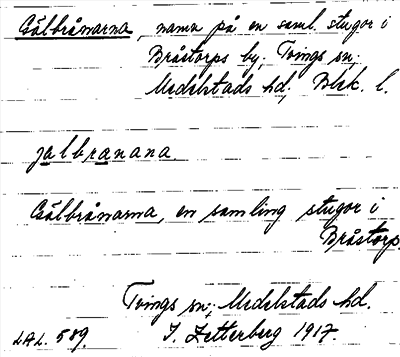 Gälbrånarna, namn på en saml. stugor i
Bråstorps by, Tvings sn;
Medelstads hd, Blek. l.
jalbranana.
Gälbrånarna, en samling stugor i
Bråstorp.
Tvings sn; Medelstads hd.
L.A.L. 589. J. Zetterberg 1917.